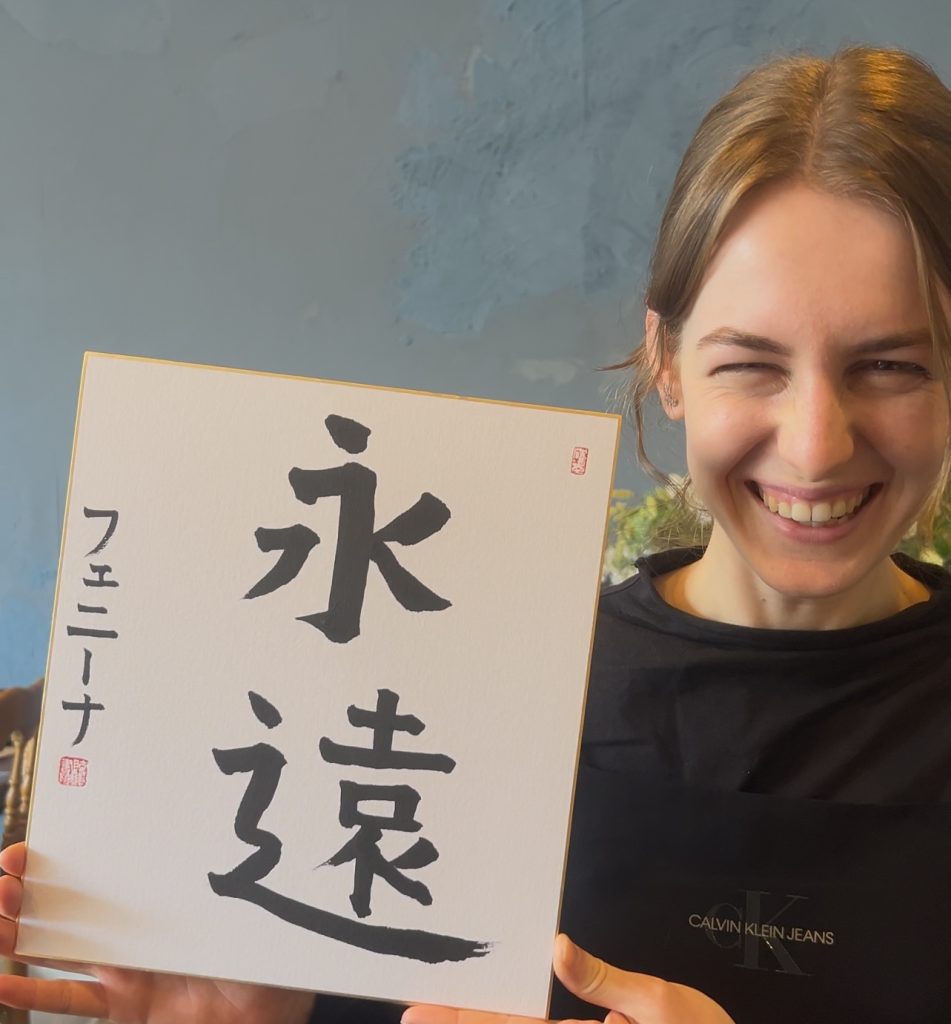 永遠
フェニーナ
CALVIN KLEIN JEANS
CK